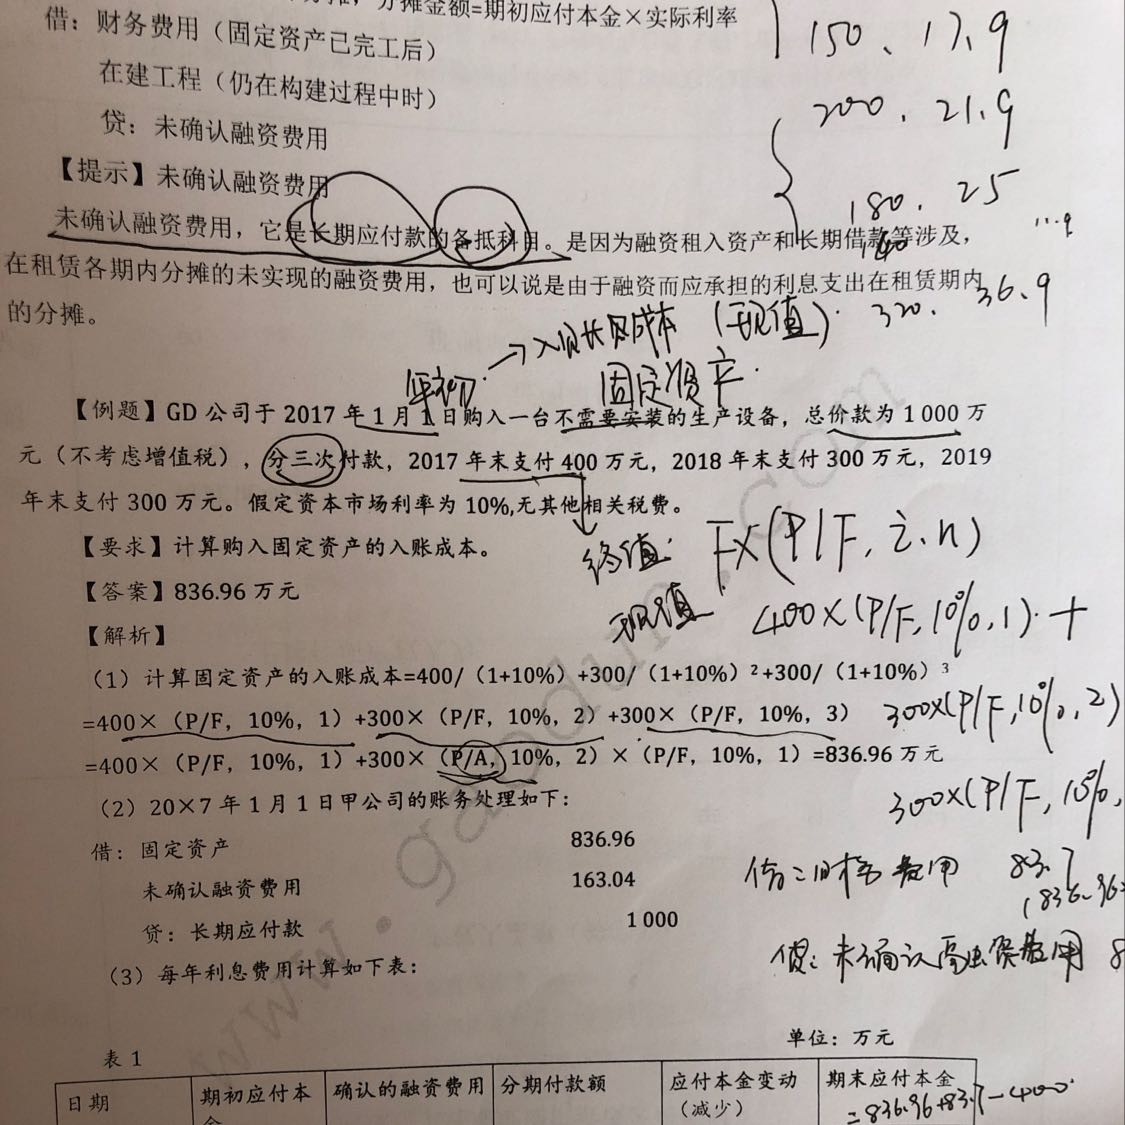 分摊金额=期初应付本金×实际利率
借：财务费用（固定资产已完工后）
在建工程（仍在构建过程中时）
贷：未确认融资费用
【提示】未确认融资费用
未确认融资费用，它是长期应付款的备抵科目。是因为融资租入资产和长期借款等涉及，
在租赁各期内分摊的未实现的融资费用，也可以说是由于融资而应承担的利息支出在租赁期内
的分摊。
150、17.9
200、21.9
180、25
320、36.9
年初→入账长器成本（现值）
固定资产
【例题】GD 公司于 2017 年 1 月 1 日购入一台不需要安装的生产设备，总价款为 1 000 万
元（不考虑增值税），分三次付款，2017 年末支付 400 万元，2018 年末支付 300 万元，2019
年末支付 300 万元。假定资本市场利率为 10%,无其他相关税费。
【要求】计算购入固定资产的入账成本。
终值：F×(P/F, i, n)
【答案】836.96 万元
现值 400×(P/F,10%,1)+
【解析】
（1）计算固定资产的入账成本=400/（1+10%）+300/（1+10%）²+300/（1+10%）³
=400×（P/F，10%，1）+300×（P/F，10%，2）+300×（P/F，10%，3）
300×(P/F,10%,2)
=400×（P/F，10%，1）+300×（P/A，10%，2）×（P/F，10%，1）=836.96 万元
300×(P/F,10%,
（2）20×7 年 1 月 1 日甲公司的账务处理如下：
借：固定资产 836.96
未确认融资费用 163.04
贷：长期应付款 1 000
借：财务费用 83.7
(836.96
贷：未确认融资费用 8
（3）每年利息费用计算如下表：
表 1 单位：万元
日期 期初应付本金 确认的融资费用 分期付款额 应付本金变动（减少） 期末应付本金
=836.96+83.7-400
www.gaodun.com